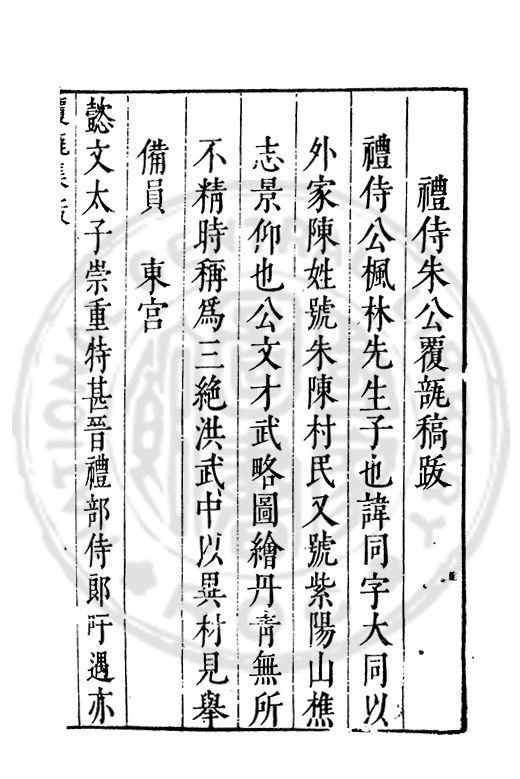 禮侍朱公覆瓿稿跋
禮侍公楓林先生子也諱同字大同以
外家陳姓號朱陳村民又號紫陽山樵
志景仰也公文才武略圖繪丹青無所
不精時稱爲三絶洪武中以異材見舉
備員　東宫
懿文太子崇重特甚晉禮部侍郎吁遇亦